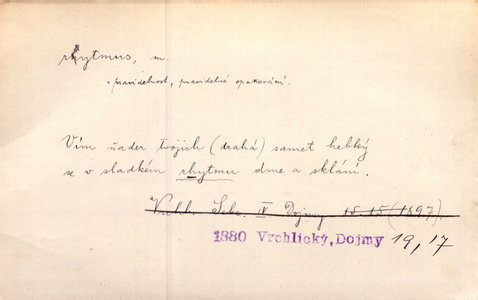 rhytmus, m.
pravidelnost, pravidelné opakování.
Vím ňader tvojich (drahá) samet hebký
se v sladkém rhytmu dme a sklání.
IV Dojmy 15.15 (1897).
1880 Vrchlický, Dojmy 19, 17